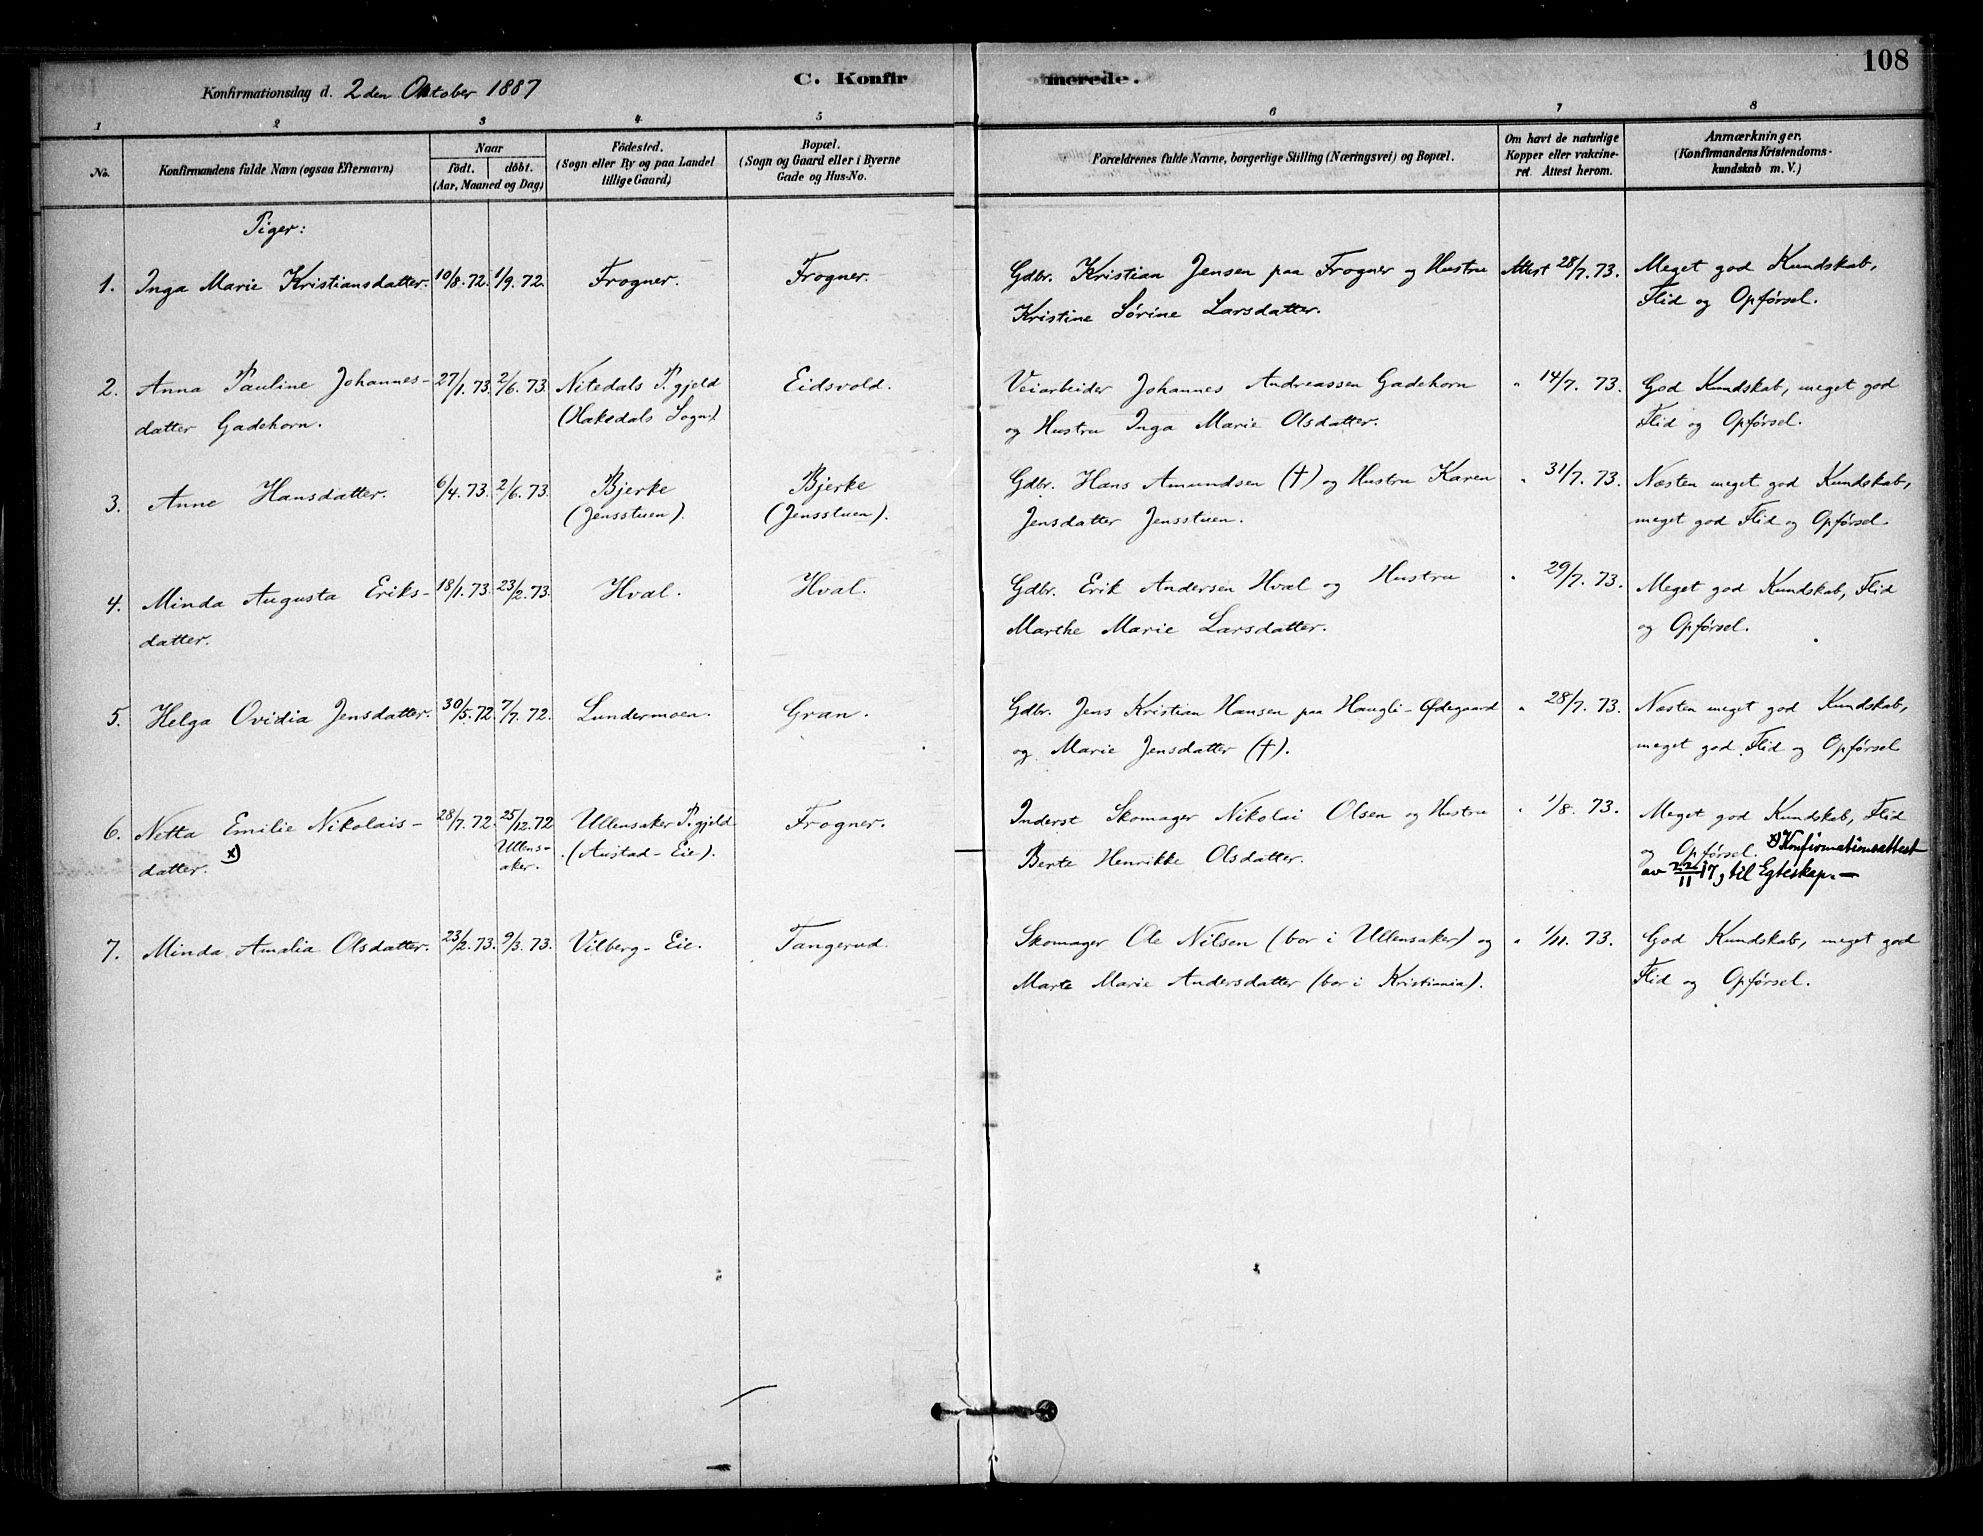 108
Konfirmationsdag d. 2den Oktober 1887
C. Konfirmerede.
1 2 3 4. 5 6 7 8
No.
Konfirmandens fulde Navn (ogsaa Efternavn)
Naar
födt. döbt.
(Aar, Maaned og Dag)
Födested.
(Sogn eller By og paa Landet
tillige Gaard)
Bopæl.
(Sogn og Gaard eller i Byerne
Gade og Hus-No.
Forældrenes fulde Navne, borgerlige Stilling (Næringsvei) og Bopæl.
Om havt de naturlige
Kopper eller vakcine-
ret. Attest herom.
Anmærkninger.
(Konfirmandens Kristendoms-
kundskab m. V.)
Piger:
1. Inga Marie Kristiansdatter. 10/8. 72. 1/9. 72. Frogner. Frogner. Gdbr. Kristian Jensen paa Frogner og Hustru Attest 28/7. 73. Meget god Kundskab,
Kristine Sørine Larsdatter. Flid og Opførsel.
2. Anna Pauline Johannes- 27/1. 73. 2/6. 73. Nitedals P.gjeld Eidsvold. Veiarbeider Johannes Andreassen Gadehorn " 14/7. 73. God Kundskab, meget god
datter Gadehorn. (Hakedals Sogn) og Hustru Inga Marie Olsdatter. Flid og Opførsel.
3. Anne Hansdatter. 6/4. 73. 2/6. 73. Bjerke Bjerke Gdbr. Hans Amundsen (†) og Hustru Karen " 31/7. 73. Næsten meget god Kundskab,
(Jensstuen). (Jensstuen). Jensdatter Jensstuen. meget god Flid og Opførsel.
4. Minda Augusta Eriks- 18/1. 73. 23/2. 73. Hval. Hval. Gdbr. Erik Andersen Hval og Hustru " 29/7. 73. Meget god Kundskab, Flid
datter. Marthe Marie Larsdatter. og Opførsel.
5. Helga Ovidia Jensdatter. 30/5. 72. 7/7. 72. Lundermoen. Gran. Gdbr. Jens Kristian Hansen paa Haugli-Ødegaard " 28/7. 73. Næsten meget god Kundskab,
og Marie Jensdatter (†). meget god Flid og Opførsel
6. Netta Emilie Nikolais- 28/7. 72. 25/12. 72 Ullensaker P.gjeld Frogner. Inderst Skomager Nikolai Olsen og Hustru " 1/8. 73. Meget god Kundskab, Flid
datter. x) Ullens-
aker. (Austad-Eie). Berte Henrikke Olsdatter. og Opførsel. x) Konfirmationsattest
av 22/11 17, til Egteskap. —
7. Minda Amalia Olsdatter. 23/2. 73. 9/3. 73. Vilberg-Eie. Tangerud. Skomager Ole Nilsen (bor i Ullensaker) og " 1/11. 73. God Kundskab, meget god
Marte Marie Andersdatter (bor i Kristiania). Flid og Opførsel.